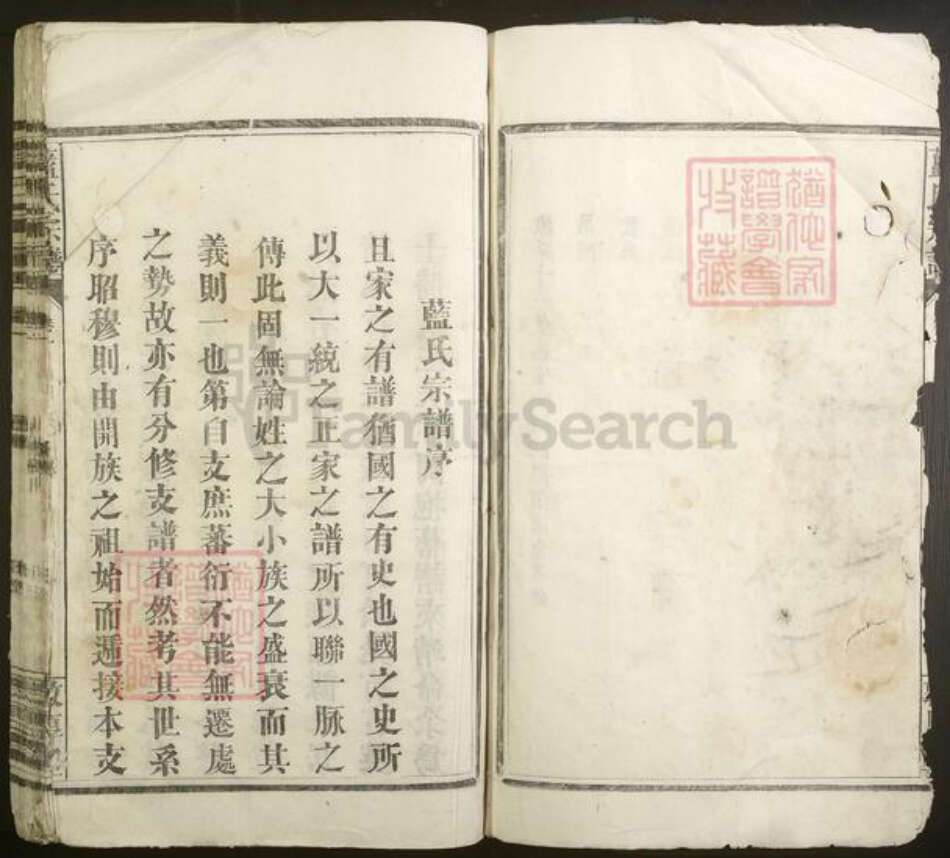 藍氏宗譜序
且家之有譜猶國之有史也國之史所
以大一統之正家之譜所以聯一脉之
傳此固無論姓之大小族之盛衰而其
義則一也第自支庶蕃衍不能無遷處
之勢故亦有分修支譜者然考其世系
序昭穆則由開族之祖始而遞援本支
藍氏宗譜
卷一
FamilySearch